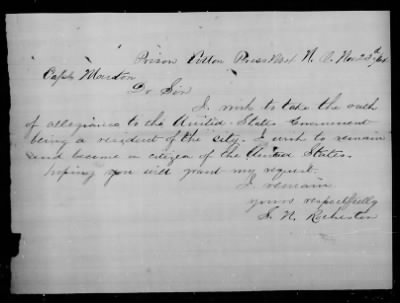 Prison Nov 23
Capt Marston
Dr Sir
I wish to take the oath
of allegiance to the United States Government
being a resident of the city. I wish to remain
and become a citizen of the United States.
hoping you will grant my request.
I remain
yours respectfully